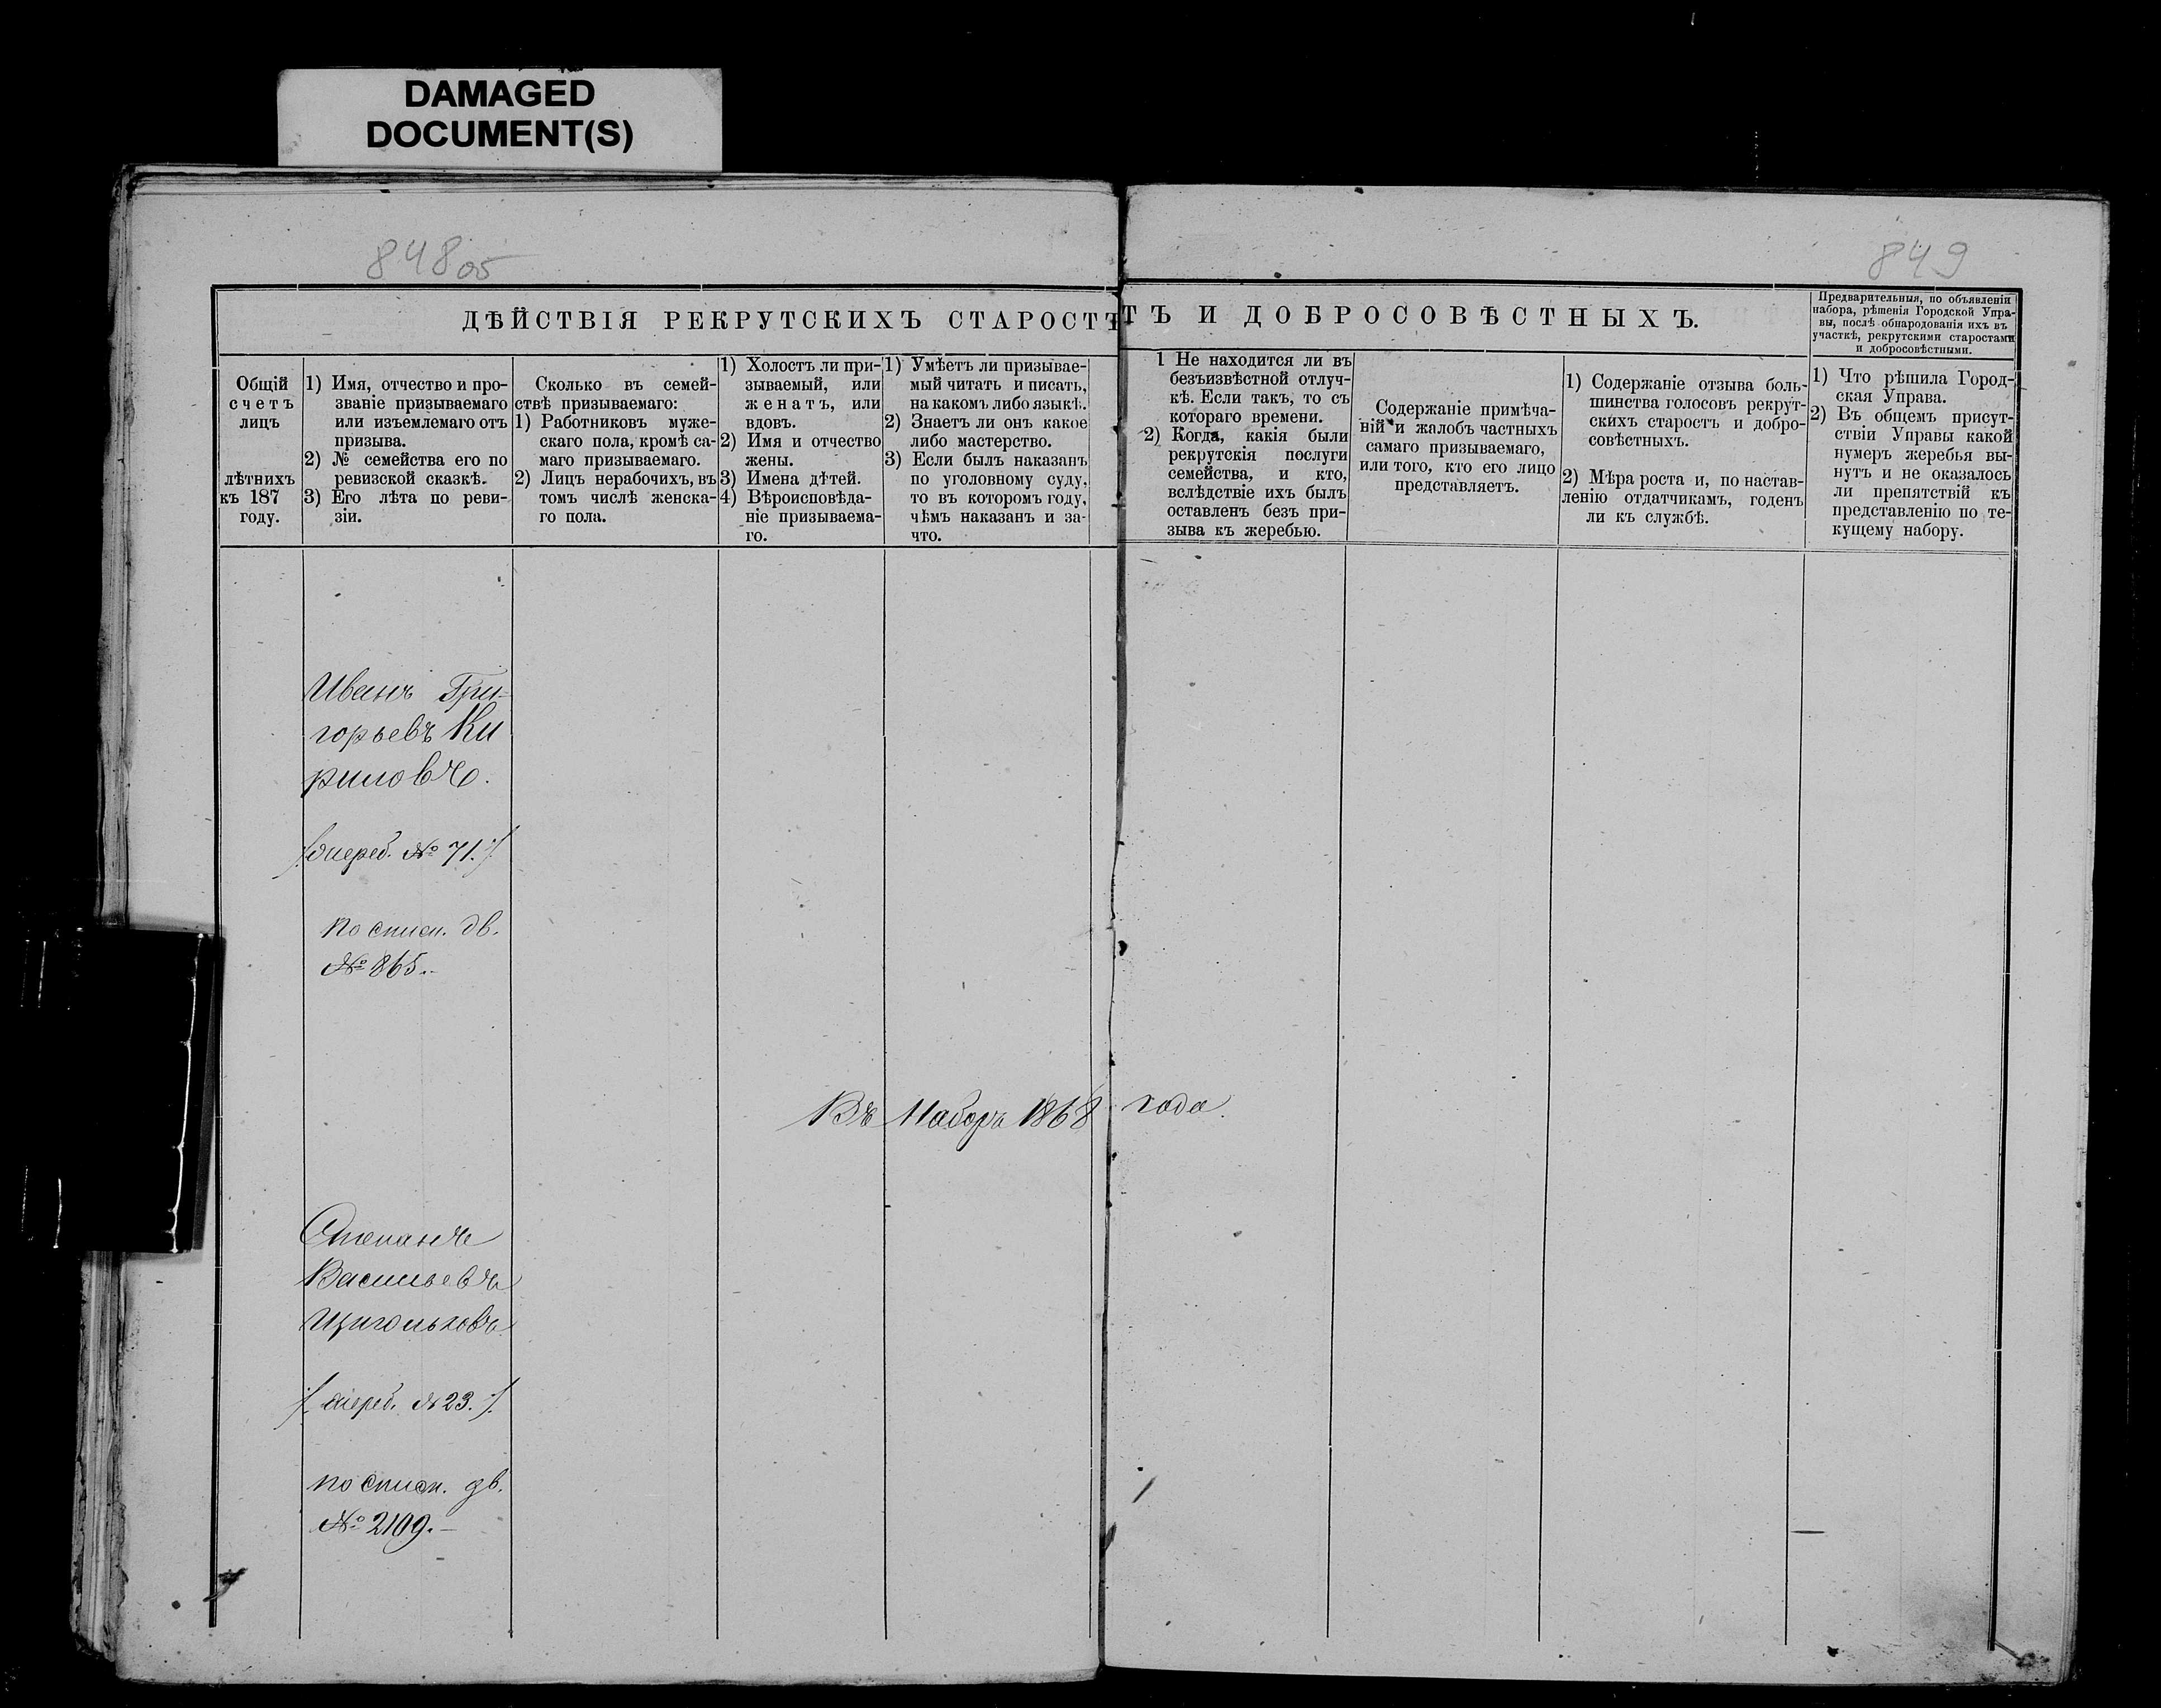 DAMAGED
DOCUMENT(S)
848об
849
ДѢЙСТВІЯ РЕКРУТСКИХЪ СТАРОСТЪ И ДОБРОСОВѢСТНЫХЪ.
Предварительныя, по объявленіи
набора, рѣшенія Городской Упра-
вы, послѣ обнародованія ихъ въ
участкѣ, рекрутскими старостами
и добросовѣстными.
Общій
счетъ
лицъ
лѣтнихъ
къ 187
году.
1) Имя, отчество и про-
званіе призываемаго
или изъемлемаго отъ
призыва.
2) № семейства его по
ревизской сказкѣ.
3) Его лѣта по реви-
зіи.
Сколько въ семей-
ствѣ призываемаго:
1) Работниковъ муже-
скаго пола, кромѣ са-
маго призываемаго.
2) Лицъ нерабочихъ, въ
томъ числѣ женска-
го пола.
1) Холостъ ли при-
зываемый, или
женатъ, или
вдовъ.
2) Имя и отчество
жены.
3) Имена дѣтей.
4) Вѣроисповѣда-
ніе призываема-
го.
1) Умѣетъ ли призывае-
мый читать и писать,
на какомъ либо языкѣ.
2) Знаетъ ли онъ какое
либо мастерство.
3) Если былъ наказанъ
по уголовному суду,
то въ которомъ году,
чѣмъ наказанъ и за-
что.
1 Не находится ли въ
безъизвѣстной отлуч-
кѣ. Если такъ, то съ
котораго времени.
2) Когда, какія были
рекрутскія послуги
семейства, и кто,
вслѣдствіе ихъ былъ
оставленъ безъ при-
зыва къ жеребью.
Содержаніе примѣча-
ній и жалобъ частныхъ
самаго призываемаго,
или того, кто его лицо
представляетъ.
1) Содержаніе отзыва боль-
шинства голосовъ рекрут-
скихъ старостъ и добро-
совѣстныхъ.
2) Мѣра роста и, по настав-
ленію отдатчикамъ, годенъ
ли къ службѣ.
1) Что рѣшила Город-
ская Управа.
2) Въ общемъ присут-
ствіи Управы какой
нумеръ жеребья вы-
нутъ и не оказалось
ли препятствій къ
представленію по те-
кущему набору.
Иванъ Гри-
горьевъ Ки
риловъ.
/:жереб. № 71.:/
по списк. дв.
№ 865.
Въ Наборъ 1868 года.
Степанъ
Васильевъ
Щигольковъ
/:жереб. № 23.:/
по списк. дв.
№ 2109.